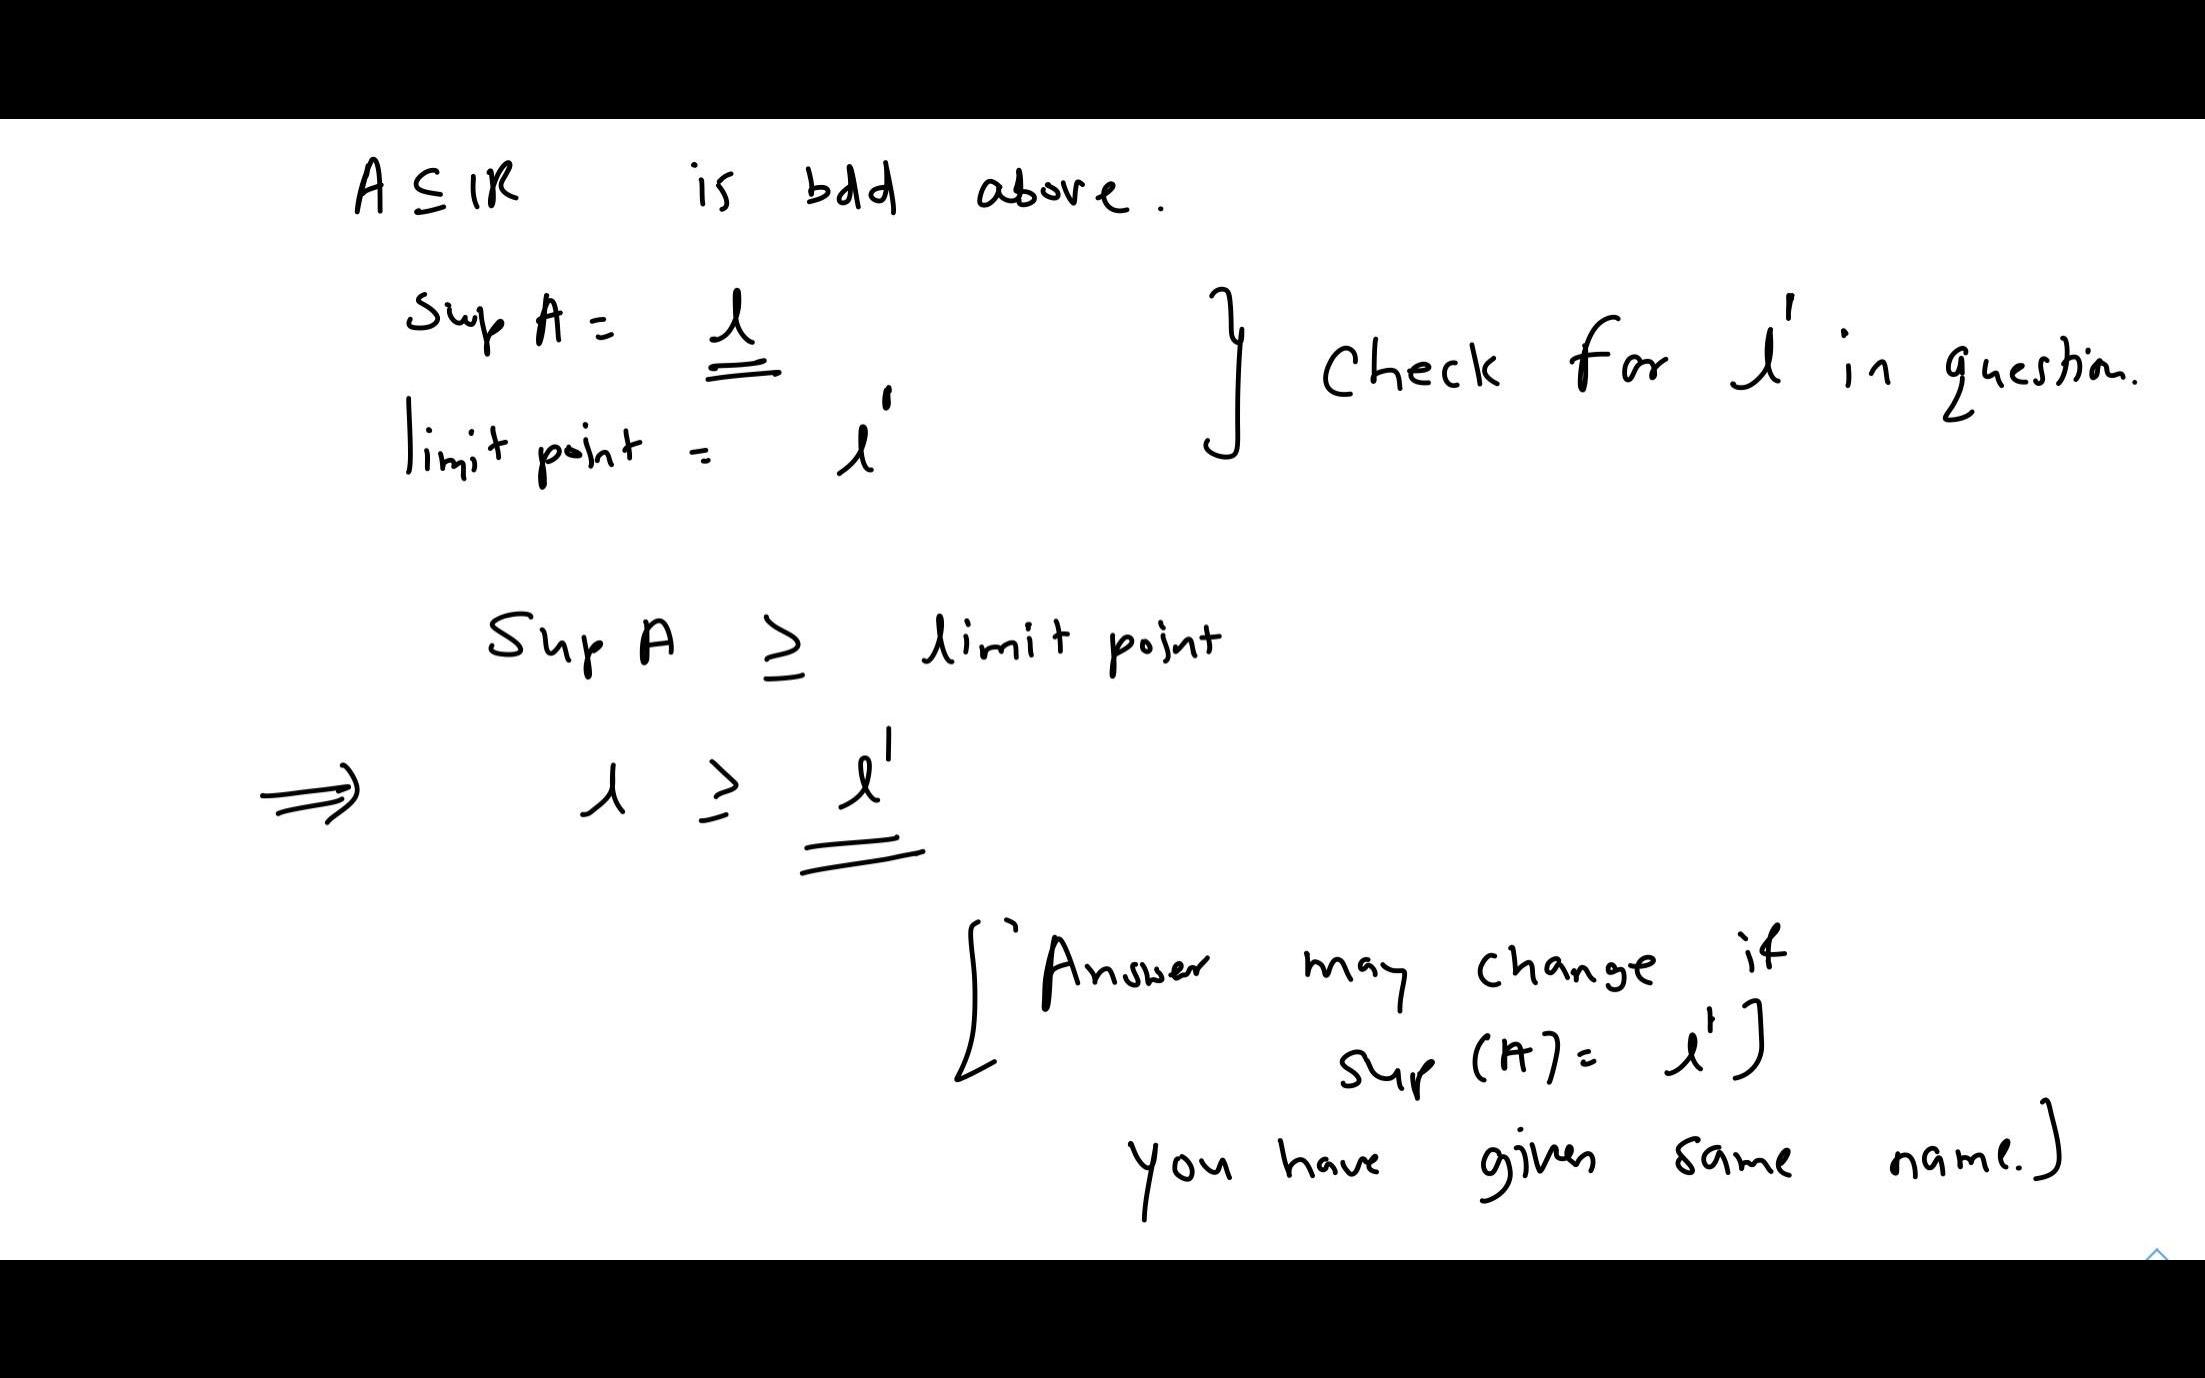 A ⊆ IR is bdd above.
Sup A = l
limit point = l'
Check for l' in question.
Sup A ≥ limit point
⟹ l ≥ l'
[Answer may change if
sup (A) = l']
you have given same name.]